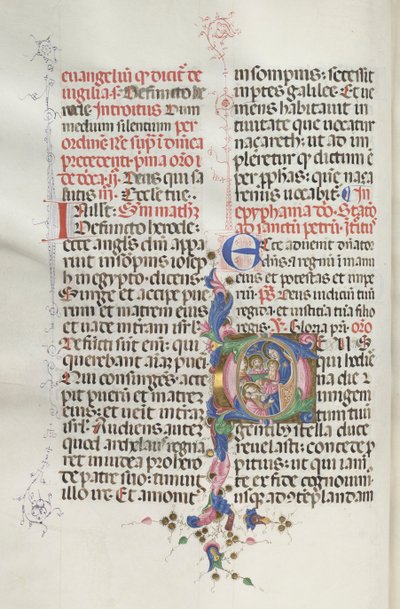 evangeliū qͥ diciť de
vigilia s. Defuncto he-
rode Introitus Dum
medium silentium per
ordinē
precedenti pͥma orōi
Deus qui sa-
lutis
In illo t̄ Sm math̄
Defuncto herode:
ecce angl's dm̄ appa-
ruit in sōpnis ioseph
in egypto: dicens.
Surge et accipe pue-
rum et matrem eius
et vade in terram isrl̄.
Defūcti sunt enī: qui
querebant aīam pueri.
Qui consurgens: acce-
pit puerū et matrē
eius: et venit in terrā
isrl̄. Audiens autē
quod archelaus regna-
ret in iudea pro hero-
de patre suo: timuit
illo ire. Et amonit'
in sompnis: secessit
in ptes galilee. Et ve-
niens habitavit in
civitate que vocatur
naçareth: ut ad im-
pleretur qd dictum ē
per pphas: que naça-
renus vocabit̄ In
epyphania dn̄i. Statō
ad sanctū petrū. Itrōit'
Ecce advenit dn̄ator
dn̄s: et regnū in manu
eius et potestas et impe-
rium. ps̄ Deus iudiciū tuū
regi da: et iusticiā tuā filio
regis. V̄ Gloria pr̄i. orō
DEUS
qui hodier-
na die u-
nigenitum
tuū
gentib' stella duce
revelasti: concede p-
pitius: ut qui iam
te ex fide cognovim'
usq̄ ad cōtēplandam